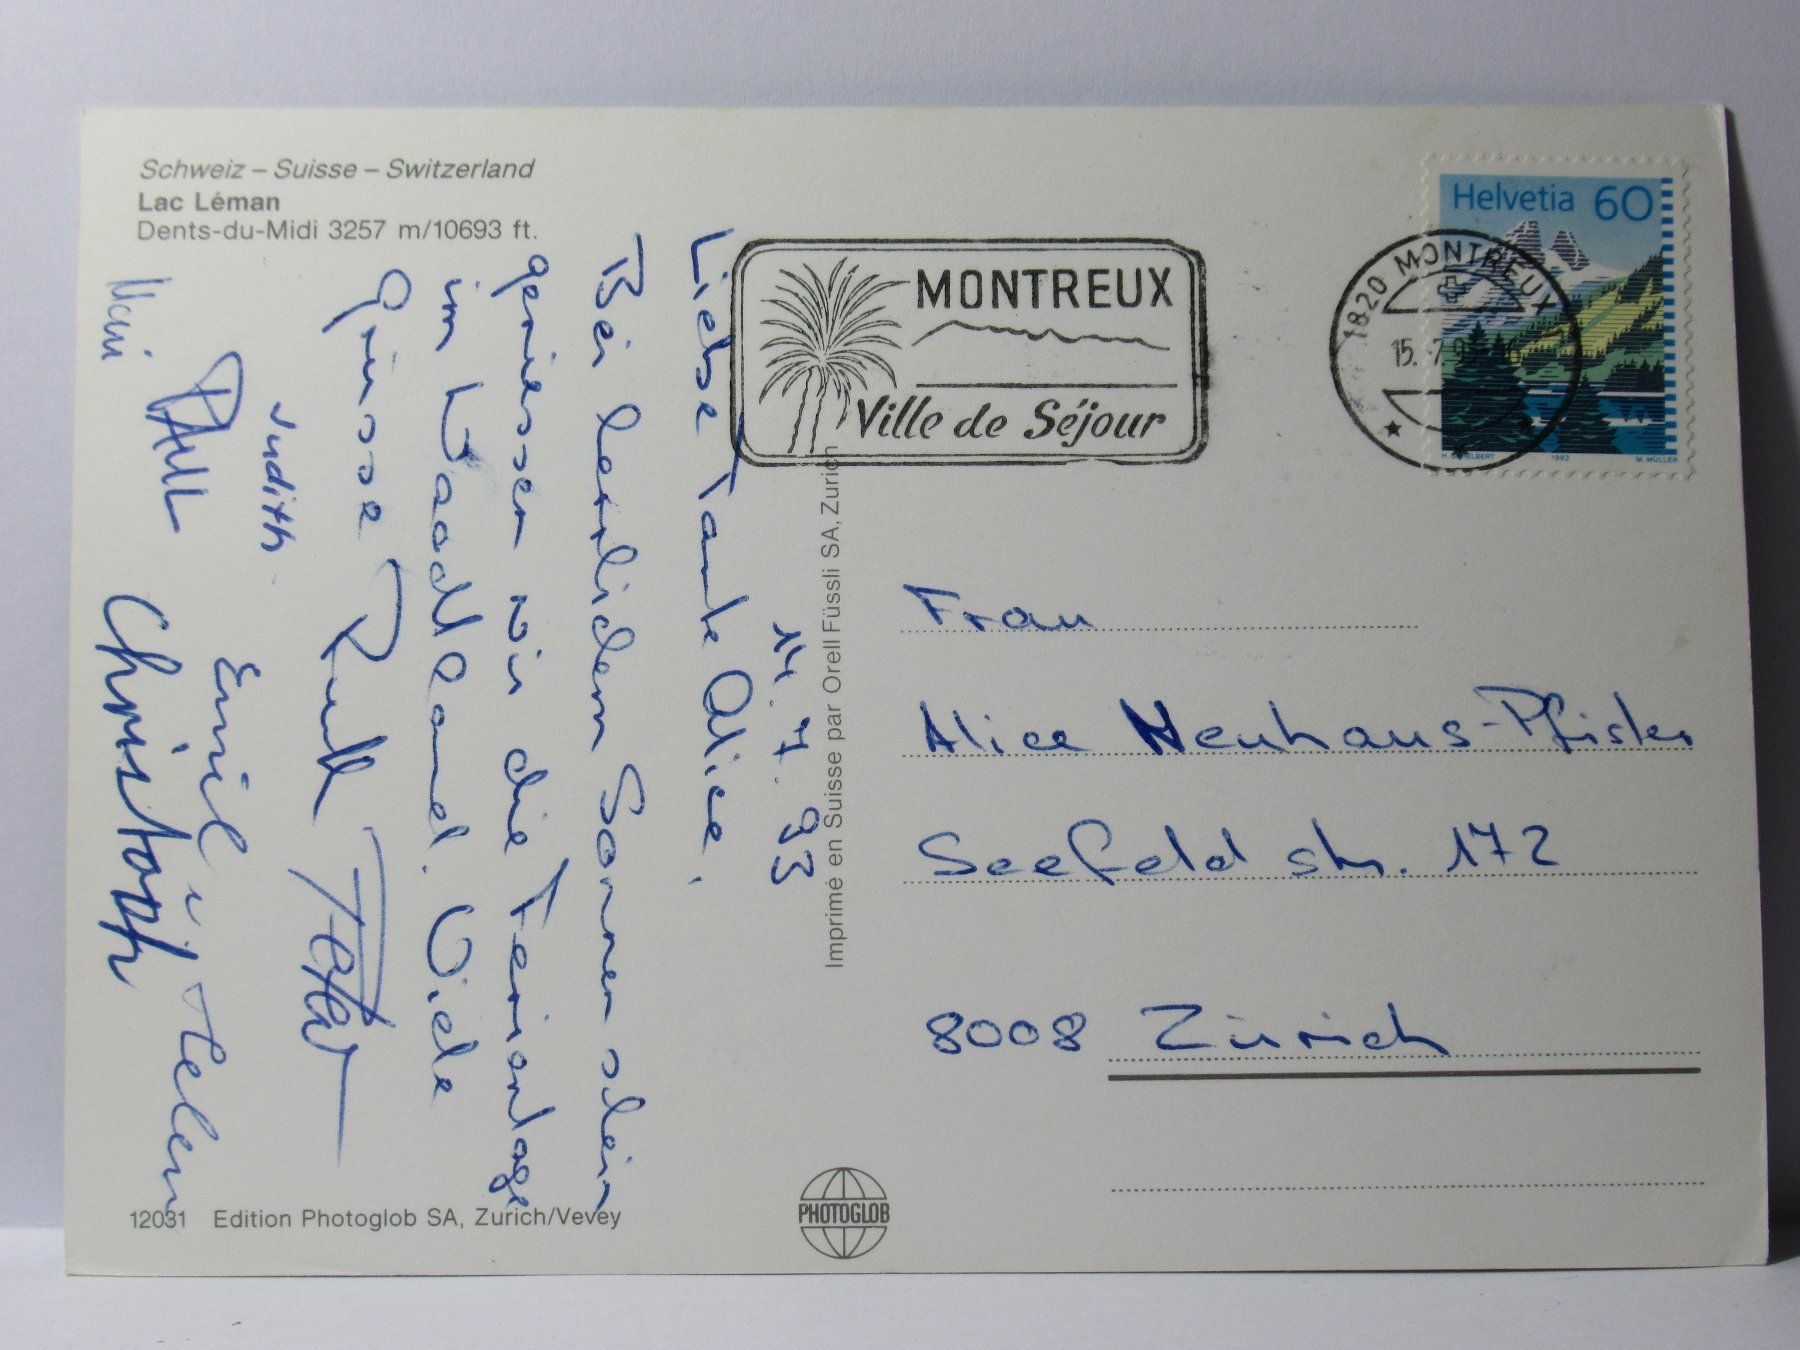 Schweiz – Suisse – Switzerland
Lac Léman
Dents-du-Midi 3257 m/10693 ft.
14.7.93
Liebe Tante Alice,
Bei herrlichem Sonnenschein
geniessen wir die Ferientage
im Waadtland. Viele
Grüsse Ruth Peter
Judith Emil u Helen
Paul Christoph
Imprimé en Suisse par Orell Füssli SA, Zurich
MONTREUX
Ville de Séjour
1820 MONTREUX 1
15. 7.93
Helvetia 60
1993 M. MÜLLER
Frau
Alice Neuhaus-Pfister
Seefeldstr. 172
8008 Zürich
12031 Edition Photoglob SA, Zurich/Vevey
PHOTOGLOB